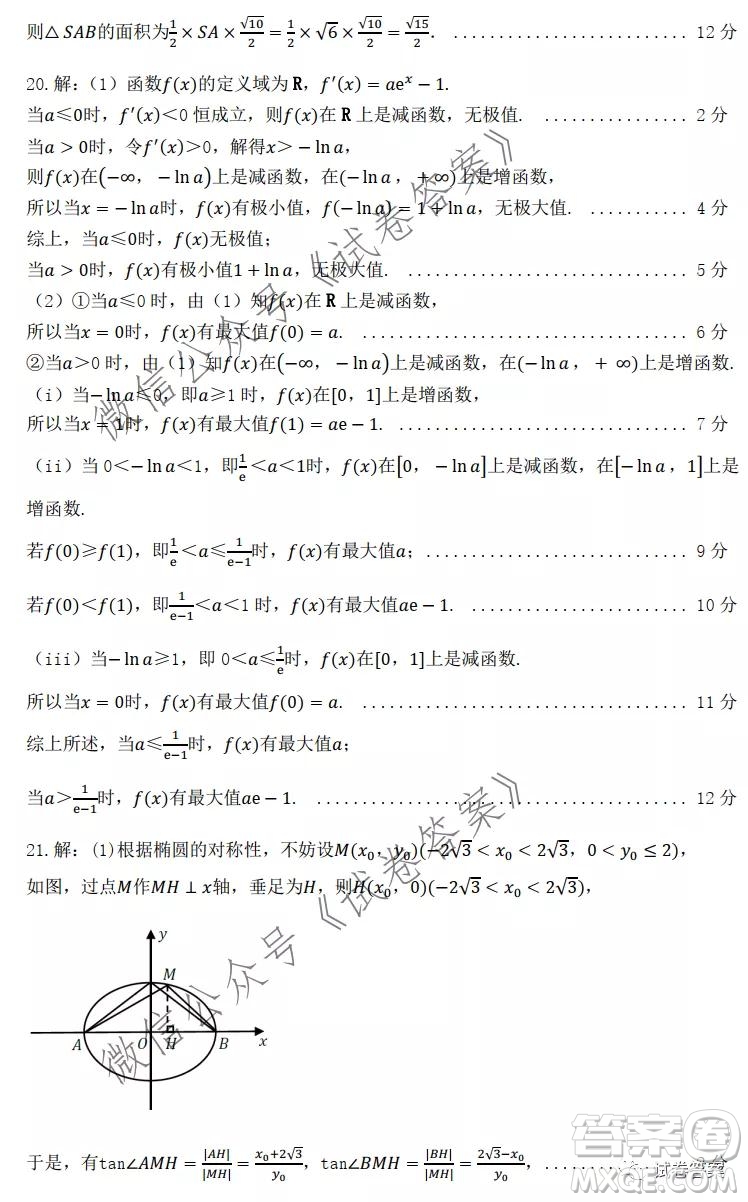 则△SAB的面积为1/2×SA×√10/2=1/2×√6×√10/2=√15/2. ........................ 12 分
20.解:(1)函数f(x)的定义域为 R,f′(x)=aeˣ−1.
当a≤0时,f′(x)<0 恒成立,则f(x)在 R 上是减函数,无极值. ................ 2 分
当a>0时,令f′(x)>0,解得x>−ln a,
则f(x)在(−∞,−ln a)上是减函数,在(−ln a,+∞)上是增函数,
所以当x=−ln a时,f(x)有极小值,f(−ln a)=1+ln a,无极大值. ........... 4 分
综上,当a≤0时,f(x)无极值;
当a>0时,f(x)有极小值1+ln a,无极大值. .......................... 5 分
(2)①当a≤0 时,由(1)知f(x)在 R 上是减函数,
所以当x=0时,f(x)有最大值f(0)=a. .............................. 6 分
②当a>0 时,由(1)知f(x)在(−∞,−ln a)上是减函数,在(−ln a,+∞)上是增函数.
(i)当−ln a≤0,即a≥1 时,f(x)在[0,1]上是增函数,
所以当x=1时,f(x)有最大值f(1)=ae−1. ........................... 7 分
(ii)当 0<−ln a<1,即1/e<a<1时,f(x)在[0,−ln a]上是减函数,在[−ln a,1]上是
增函数.
若f(0)≥f(1),即1/e<a≤1/(e−1)时,f(x)有最大值a; ........................ 9 分
若f(0)<f(1),即1/(e−1)<a<1 时,f(x)有最大值ae−1. .................... 10 分
(iii)当−ln a≥1,即 0<a≤1/e时,f(x)在[0,1]上是减函数.
所以当x=0时,f(x)有最大值f(0)=a. .............................. 11 分
综上所述,当a≤1/(e−1)时,f(x)有最大值a;
当a>1/(e−1)时,f(x)有最大值ae−1. .................................. 12 分
21.解:(1)根据椭圆的对称性,不妨设M(x₀,y₀)(−2√3<x₀<2√3,0<y₀≤2),
如图,过点M作MH⊥x轴,垂足为H,则H(x₀,0)(−2√3<x₀<2√3),
y
M
A O H B x
于是,有tan∠AMH=|AH|/|MH|=(x₀+2√3)/y₀,tan∠BMH=|BH|/|MH|=(2√3−x₀)/y₀, ..............
微信公众号《试卷答案》
微信公众号《试卷答案》
答案圈
试卷答案